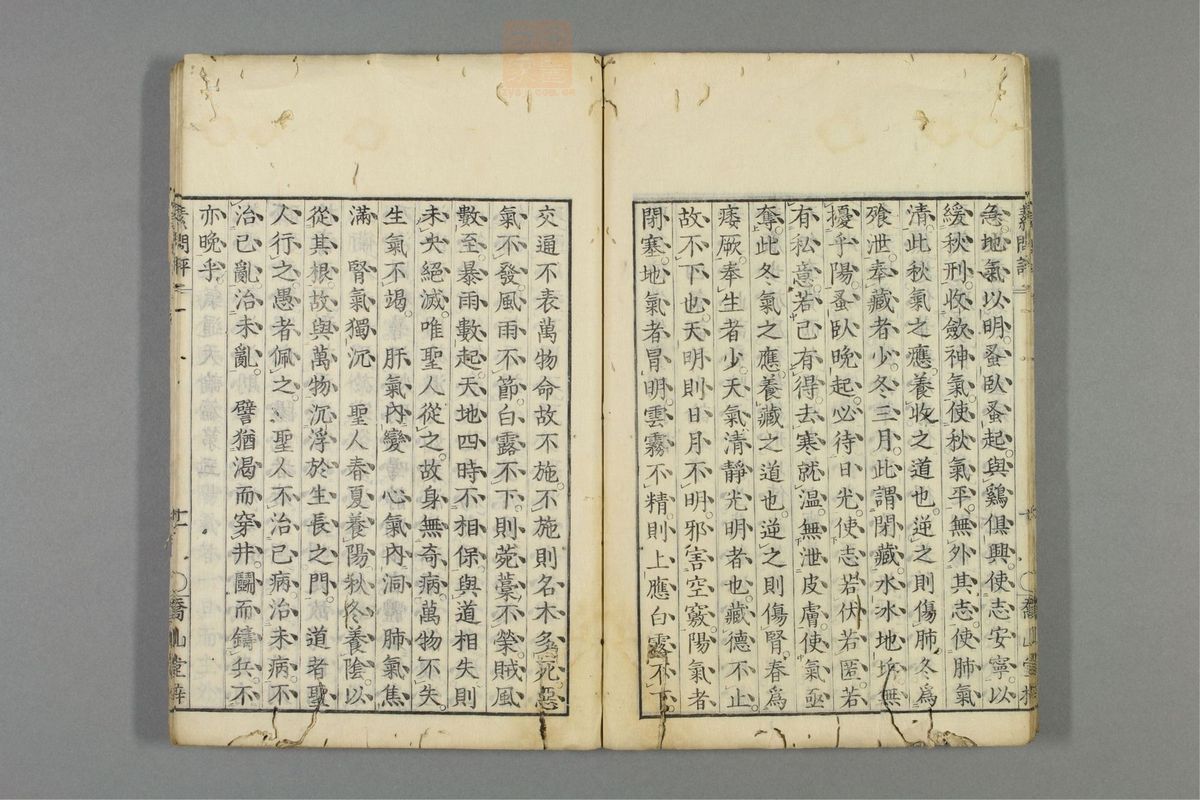 急地氣以明蚤臥蚤起與鷄俱興使志安寧以
緩秋刑收斂神氣使秋氣平無外其志使肺氣
清此秋氣之應養收之道也逆之則傷肺冬爲
飱泄奉藏者少冬三月此謂閉藏水冰地坼無
擾乎陽蚤臥晚起必待日光使志若伏若匿若
有私意若己有得去寒就温無泄皮膚使氣亟
奪此冬氣之應養藏之道也逆之則傷腎春爲
痿厥奉生者少天氣清靜光明者也藏德不止
故不下也天明則日月不明邪害空竅陽氣者
閉塞地氣者冒明雲霧不精則上應白露不下
交通不表萬物命故不施不施則名木多死惡
氣不發風雨不節白露不下則菀藁不榮賊風
數至暴雨數起天地四時不相保與道相失則
未央絕滅唯聖人從之故身無奇病萬物不失
生氣不竭 肝氣內變 心氣內洞 肺氣焦
滿 腎氣獨沉 聖人春夏養陽秋冬養陰以
從其根故與萬物沉浮於生長之門 道者聖
人行之愚者佩之 聖人不治已病治未病不
治已亂治未亂 譬猶渴而穿井鬪而鑄兵不
亦晚乎
素問評
十一
喬山堂梓